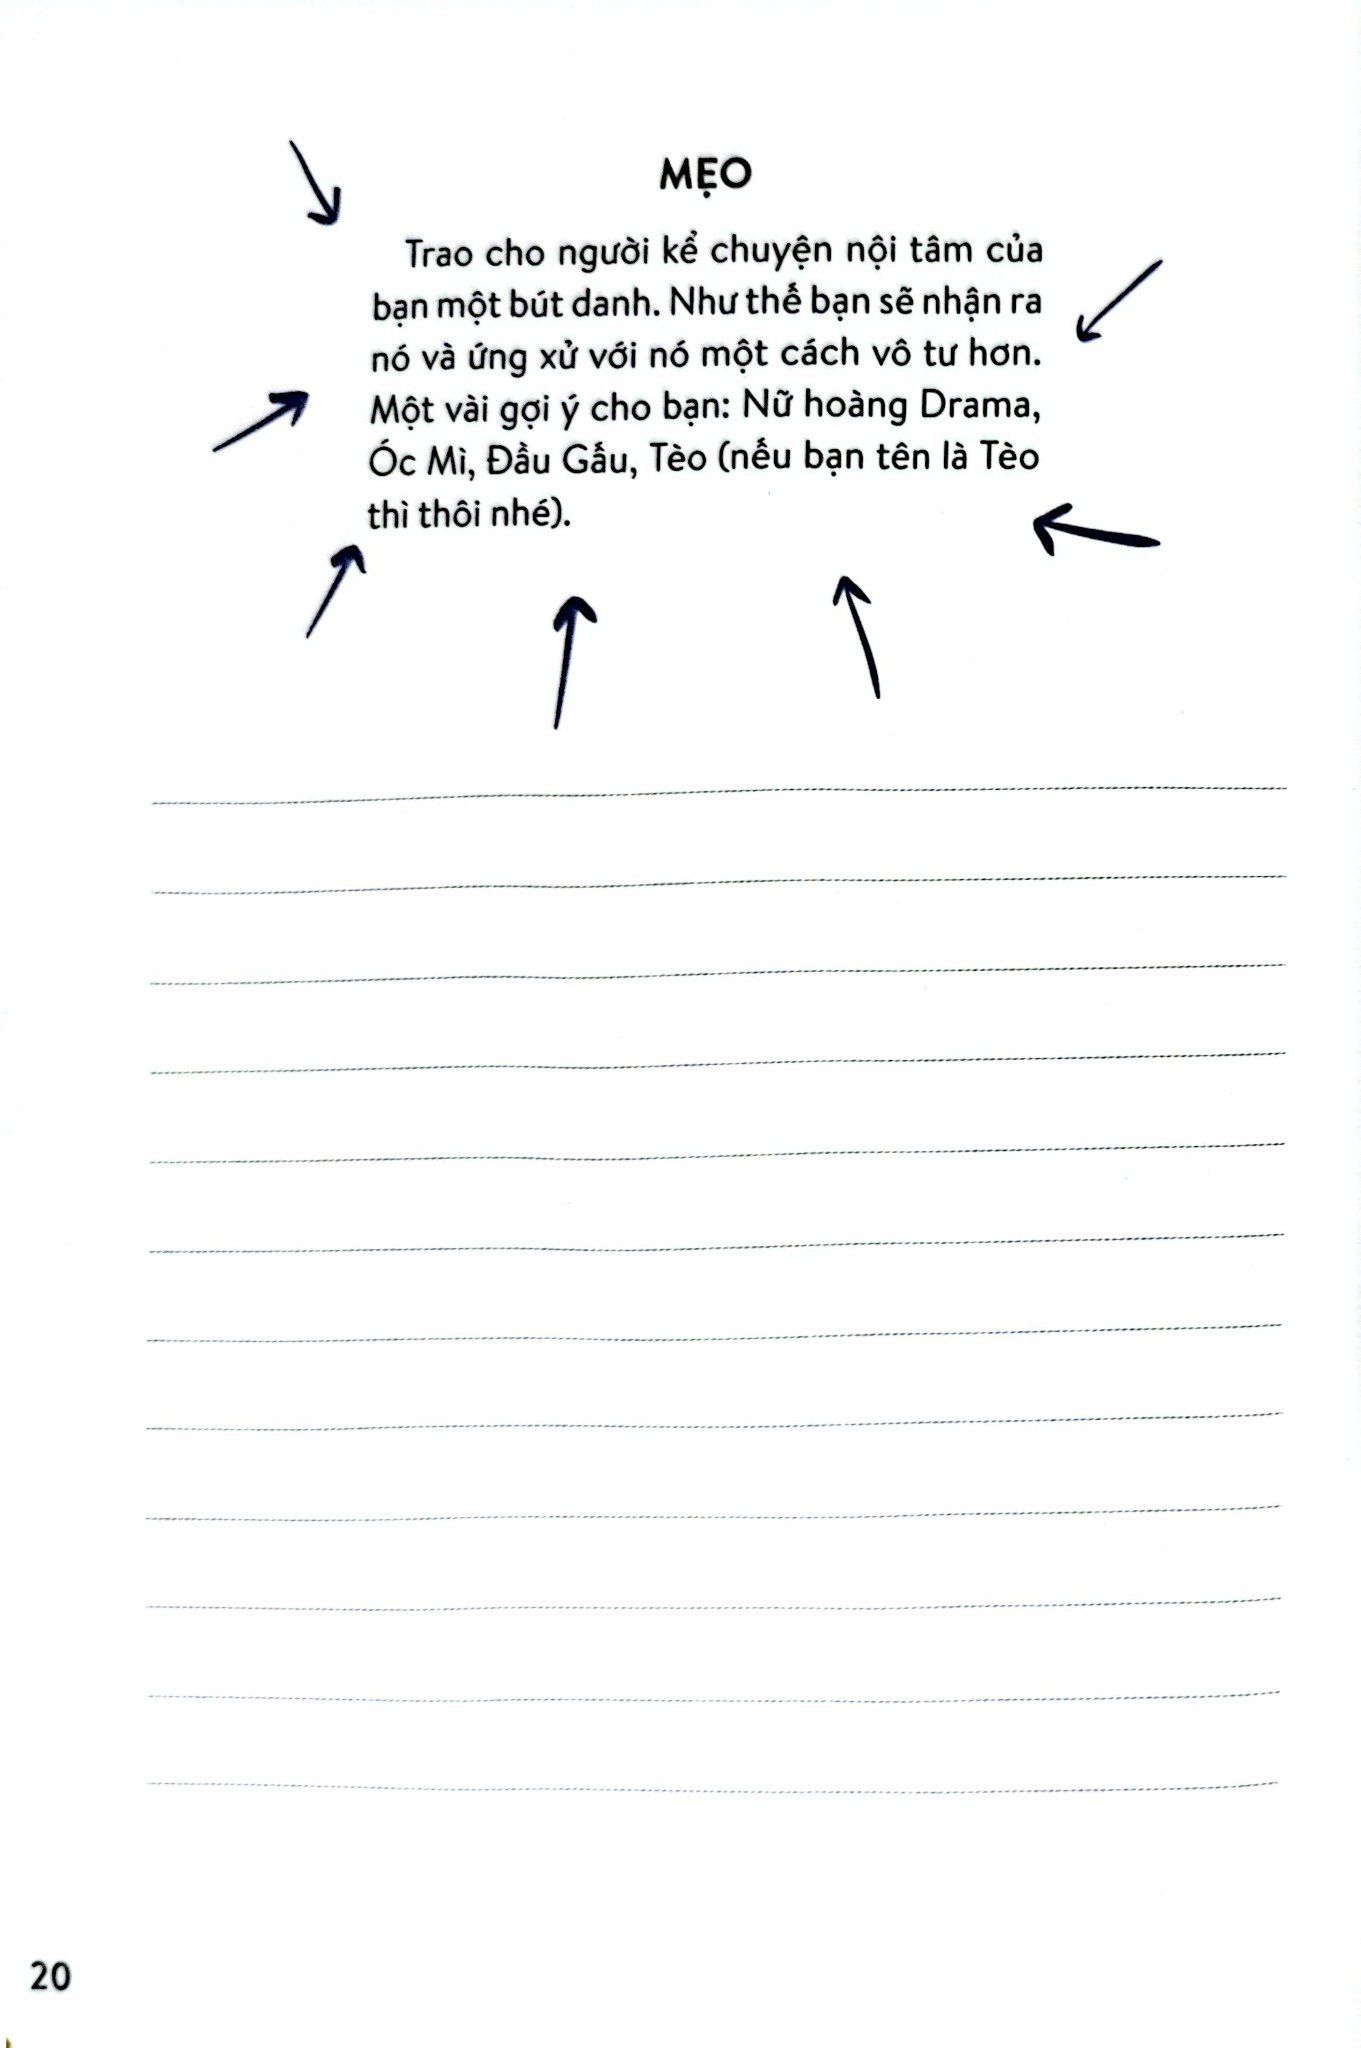 MẸO
Trao cho người kể chuyện nội tâm của
bạn một bút danh. Như thế bạn sẽ nhận ra
nó và ứng xử với nó một cách vô tư hơn.
Một vài gợi ý cho bạn: Nữ hoàng Drama,
Óc Mì, Đầu Gấu, Tèo (nếu bạn tên là Tèo
thì thôi nhé).
20